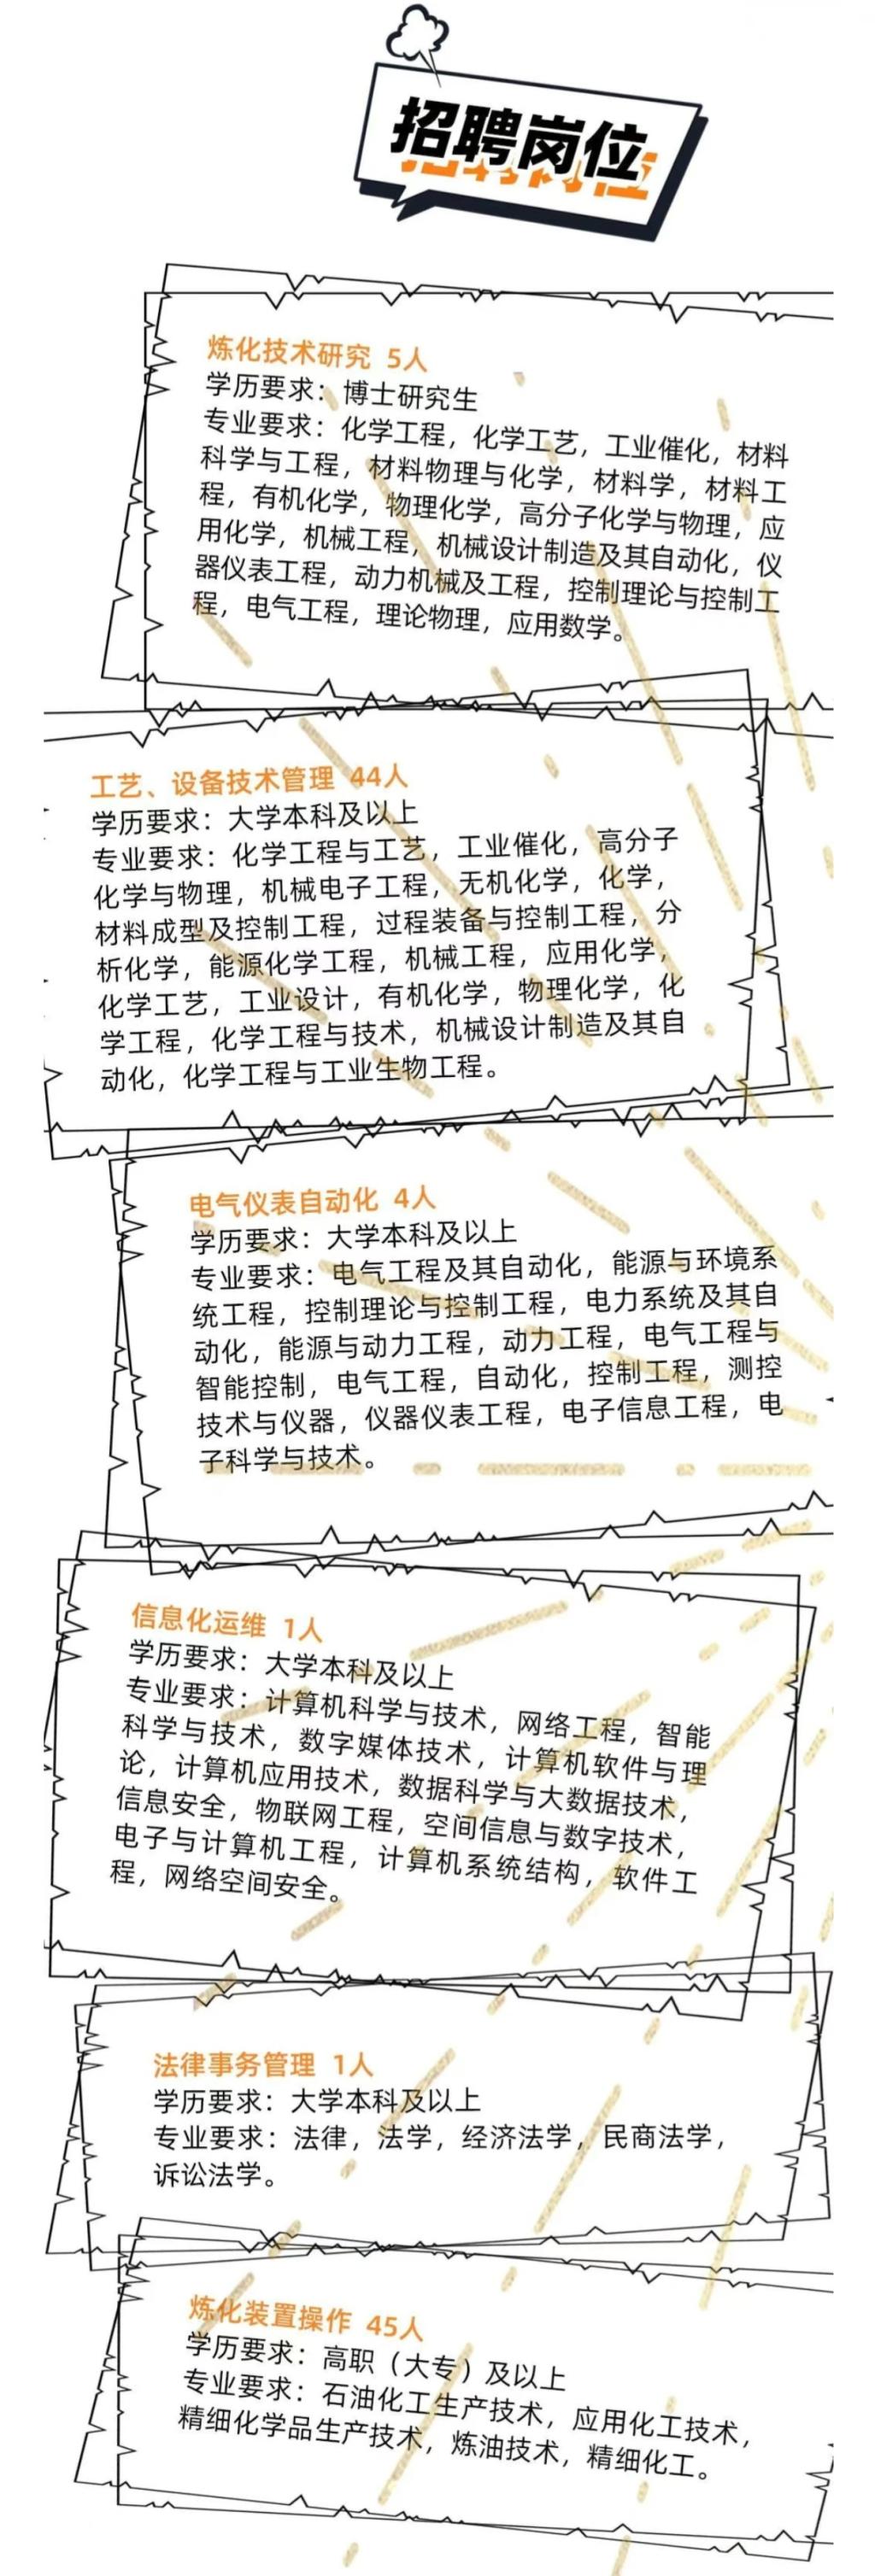 招聘岗位
炼化技术研究 5人
学历要求：博士研究生
专业要求：化学工程，化学工艺，工业催化，材料
科学与工程，材料物理与化学，材料学，材料工
程，有机化学，物理化学，高分子化学与物理，应
用化学，机械工程，机械设计制造及其自动化，仪
器仪表工程，动力机械及工程，控制理论与控制工
程，电气工程，理论物理，应用数学。
工艺、设备技术管理 44人
学历要求：大学本科及以上
专业要求：化学工程与工艺，工业催化，高分子
化学与物理，机械电子工程，无机化学，化学，
材料成型及控制工程，过程装备与控制工程，分
析化学，能源化学工程，机械工程，应用化学，
化学工艺，工业设计，有机化学，物理化学，化
学工程，化学工程与技术，机械设计制造及其自
动化，化学工程与工业生物工程。
电气仪表自动化 4人
学历要求：大学本科及以上
专业要求：电气工程及其自动化，能源与环境系
统工程，控制理论与控制工程，电力系统及其自
动化，能源与动力工程，动力工程，电气工程与
智能控制，电气工程，自动化，控制工程，测控
技术与仪器，仪器仪表工程，电子信息工程，电
子科学与技术。
信息化运维 1人
学历要求：大学本科及以上
专业要求：计算机科学与技术，网络工程，智能
科学与技术，数字媒体技术，计算机软件与理
论，计算机应用技术，数据科学与大数据技术，
信息安全，物联网工程，空间信息与数字技术，
电子与计算机工程，计算机系统结构，软件工
程，网络空间安全。
法律事务管理 1人
学历要求：大学本科及以上
专业要求：法律，法学，经济法学，民商法学，
诉讼法学。
炼化装置操作 45人
学历要求：高职（大专）及以上
专业要求：石油化工生产技术，应用化工技术，
精细化学品生产技术，炼油技术，精细化工。